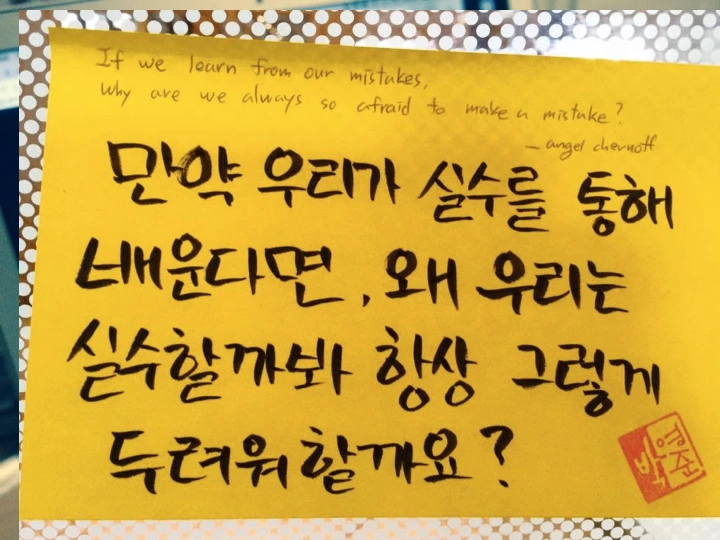 If we learn from our mistakes,
why are we always so afraid to make a mistake?
— angel chernoff
만약 우리가 실수를 통해
배운다면, 왜 우리는
실수할까봐 항상 그렇게
두려워할까요?
박영준